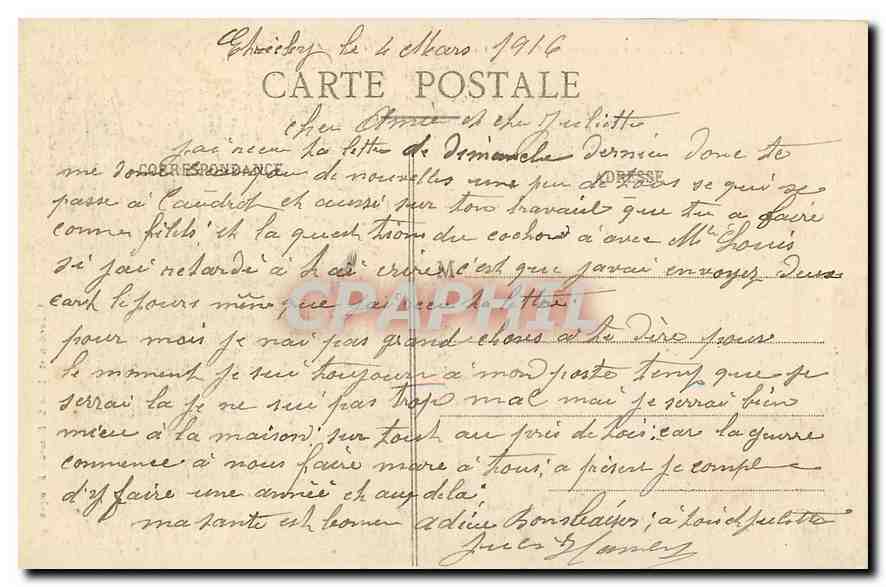 le 4 Mars 1916
CARTE POSTALE
cher Aimée et cher Juliette
j'ai recu ta lettre de dimanche dernier donc te
CORRESPONDANCE
ADRESSE
me donne un peu de nouvelles une peu de tous se qui se
passe à Caudrot et aussi sur ton travail que tu a faire
comme et la question du cochon à avec Mr Louis
si j'ai retardé à t'ai crire c'est que javai envoyez deux
M
cart le jours même que j'ai recu ta lettre.
CPAPHIL
pour moi je nai pas grand choses à te dire pour
le moment je sui toujour à mon poste temp que je
serrai la je ne sui pas trop mal mai je serrai bien
mieu à la maison surtout au près de toi; car la guerre
commence à nous faire mare à tous; a présent je compte
d'y faire une année et au dela;
ma santé est bonne adieu Bons baiser; à toi et Juliette
Jules